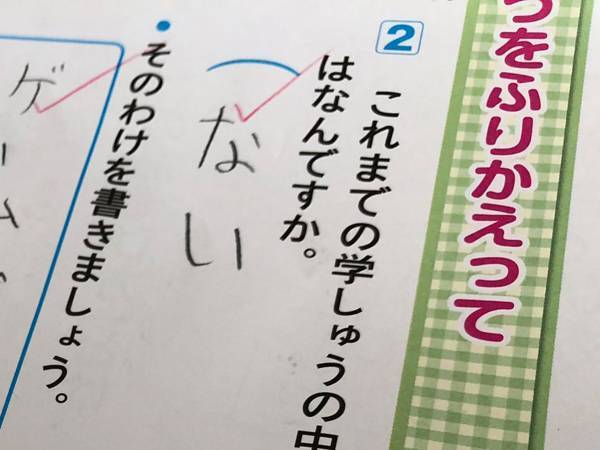 つをふりかえって
2
これまでの学しゅうの中
はなんですか。
ない
そのわけを書きましょう。
ゲーム